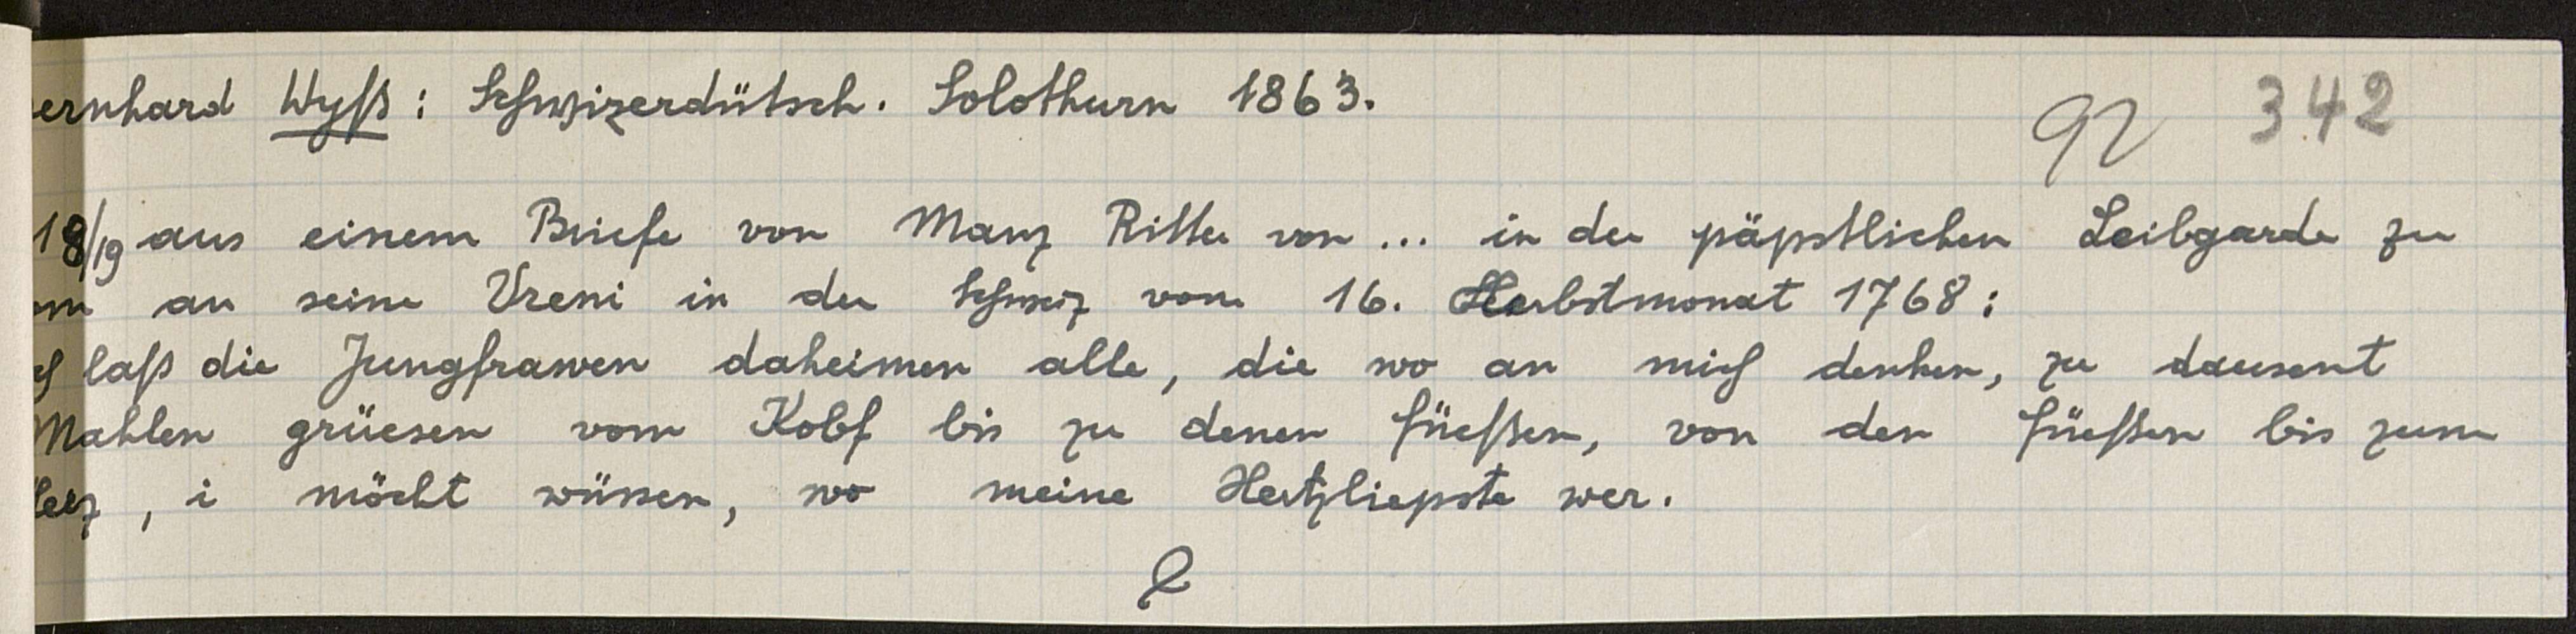 ernhard Wyß: Schwizerdütsch. Solothurn 1863.
342
18/19 aus einem Briefe von Manz Ritter von ... in der päpstlichen Leibgarde zu
om an seine Vreni in der Schweiz vom 16. Herbstmonat 1768:
ch laß die Jungfrawen daheimen alle, die wo an mich denken, zu dausent
Mahlen grüesen vom Kobf bis zu denen füeßen, von den füeßen bis zum
Herz, i möcht wüssen, wo meine Hertzliepste wer.